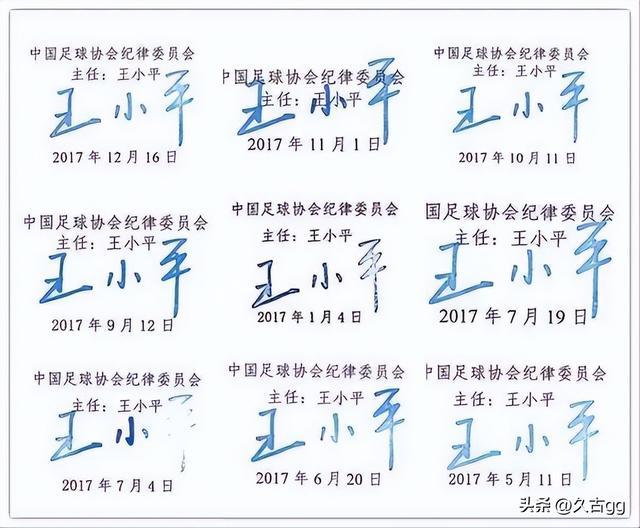 中国足球协会纪律委员会
主任：王小平
王小平
2017年12月16日
中国足球协会纪律委员会
主任：王小平
王小平
2017年11月1日
中国足球协会纪律委员会
主任：王小平
王小平
2017年10月11日
中国足球协会纪律委员会
主任：王小平
王小平
2017年9月12日
中国足球协会纪律委员会
主任：王小平
王小平
2017年1月4日
国足球协会纪律委员会
主任：王小平
王小平
2017年7月19日
中国足球协会纪律委员会
主任：王小平
王小平
2017年7月4日
中国足球协会纪律委员会
主任：王小平
王小平
2017年6月20日
中国足球协会纪律委员会
主任：王小平
王小平
2017年5月11日
头条 @久古gg